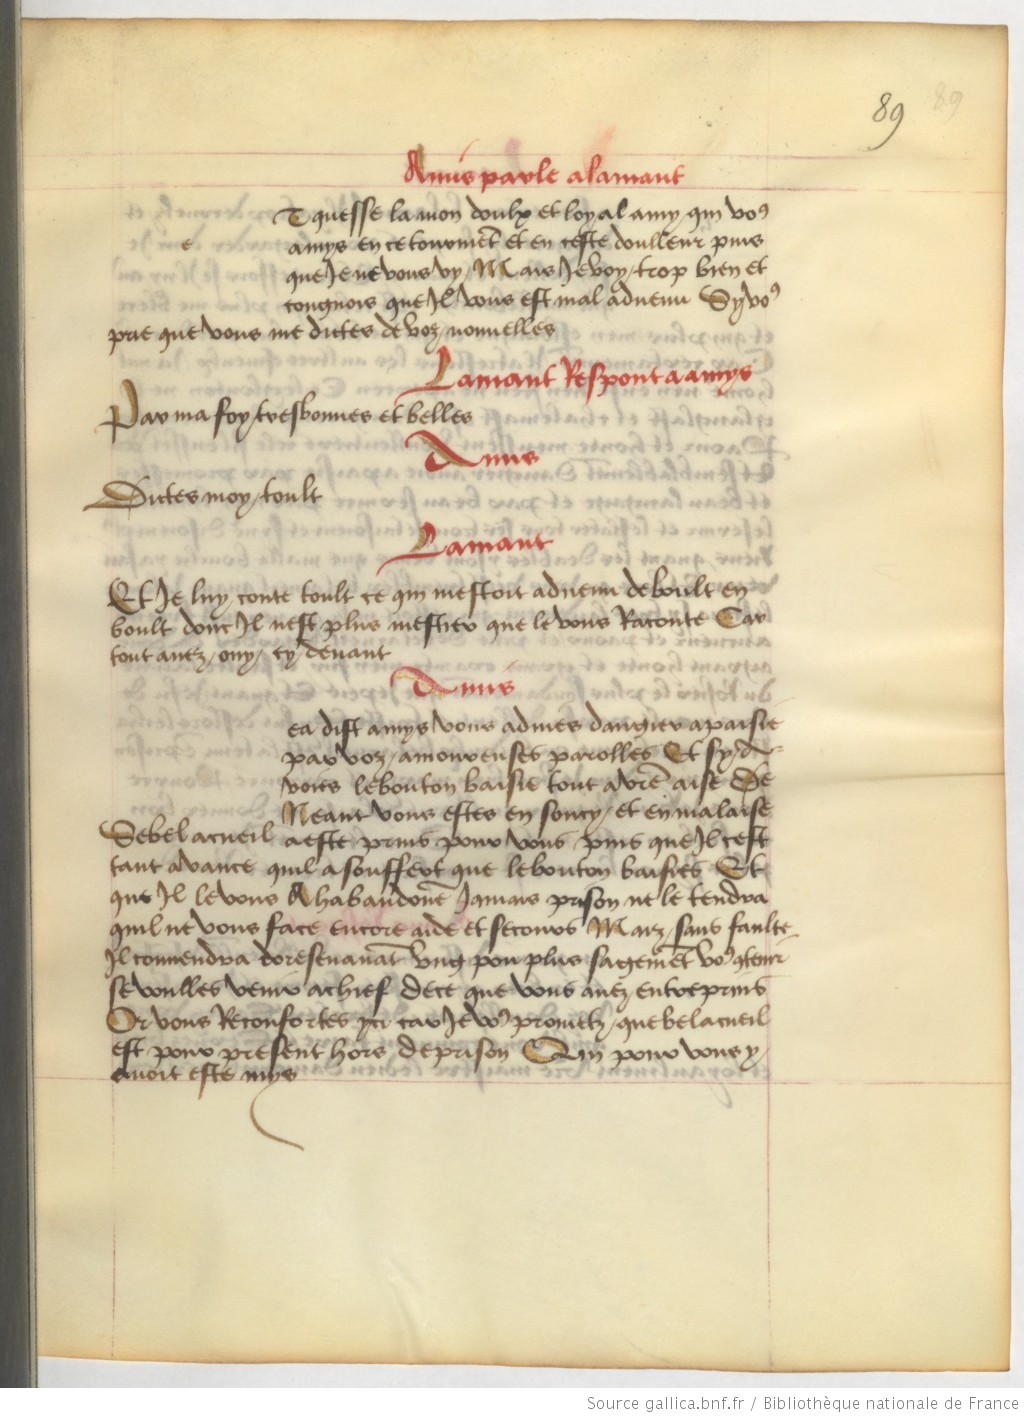 89
Amis parle a lamant
e
T quesse la mon doulx et loyal amy qui vo9
amys en ce tourmēt et en ceste doulleur puis
que Je ne vous vy / Mais Je voy / trop bien et
congnois que Il vous est mal aduenu Sy vo9
prie que vous me dictes de voz / nouuelles
Lamant Respont a amys
Par ma foy / tresbonnes et belles
Amis
Dictes moy / toult
Lamant
Et Je luy conte toult ce qui mestoit aduenu de boult en
boult donc Il nest plus mestier que le vous Raconte Car
tout auez / ouy / cy / deuant
Amis
ea dist amys vous admes dangier apaisie
par voz / amoureuses parolles Et sy /
le bouton baisie tout a vr̄e aise De
Neant vous estes en soucy / et en malaise
Se bel acueil a este prins pour vous / puis que Il cest
tant auance quil a souffert que le bouton baisies Et
que Il le vous Ahabandōne Jamais prison ne le tendra
quil ne vous face encore aide et secours Maiz / sans faulte
Il conuendra doresenauāt vng pou plus sagemēt vo9 9tenir
se voulles venir a chief de ce que vous auez entreprins
Or vous Reconfortes yci car Je vo9 prometz / que bel acueil
est pour present hors de prison Qui pour vous y /
auoit este mys